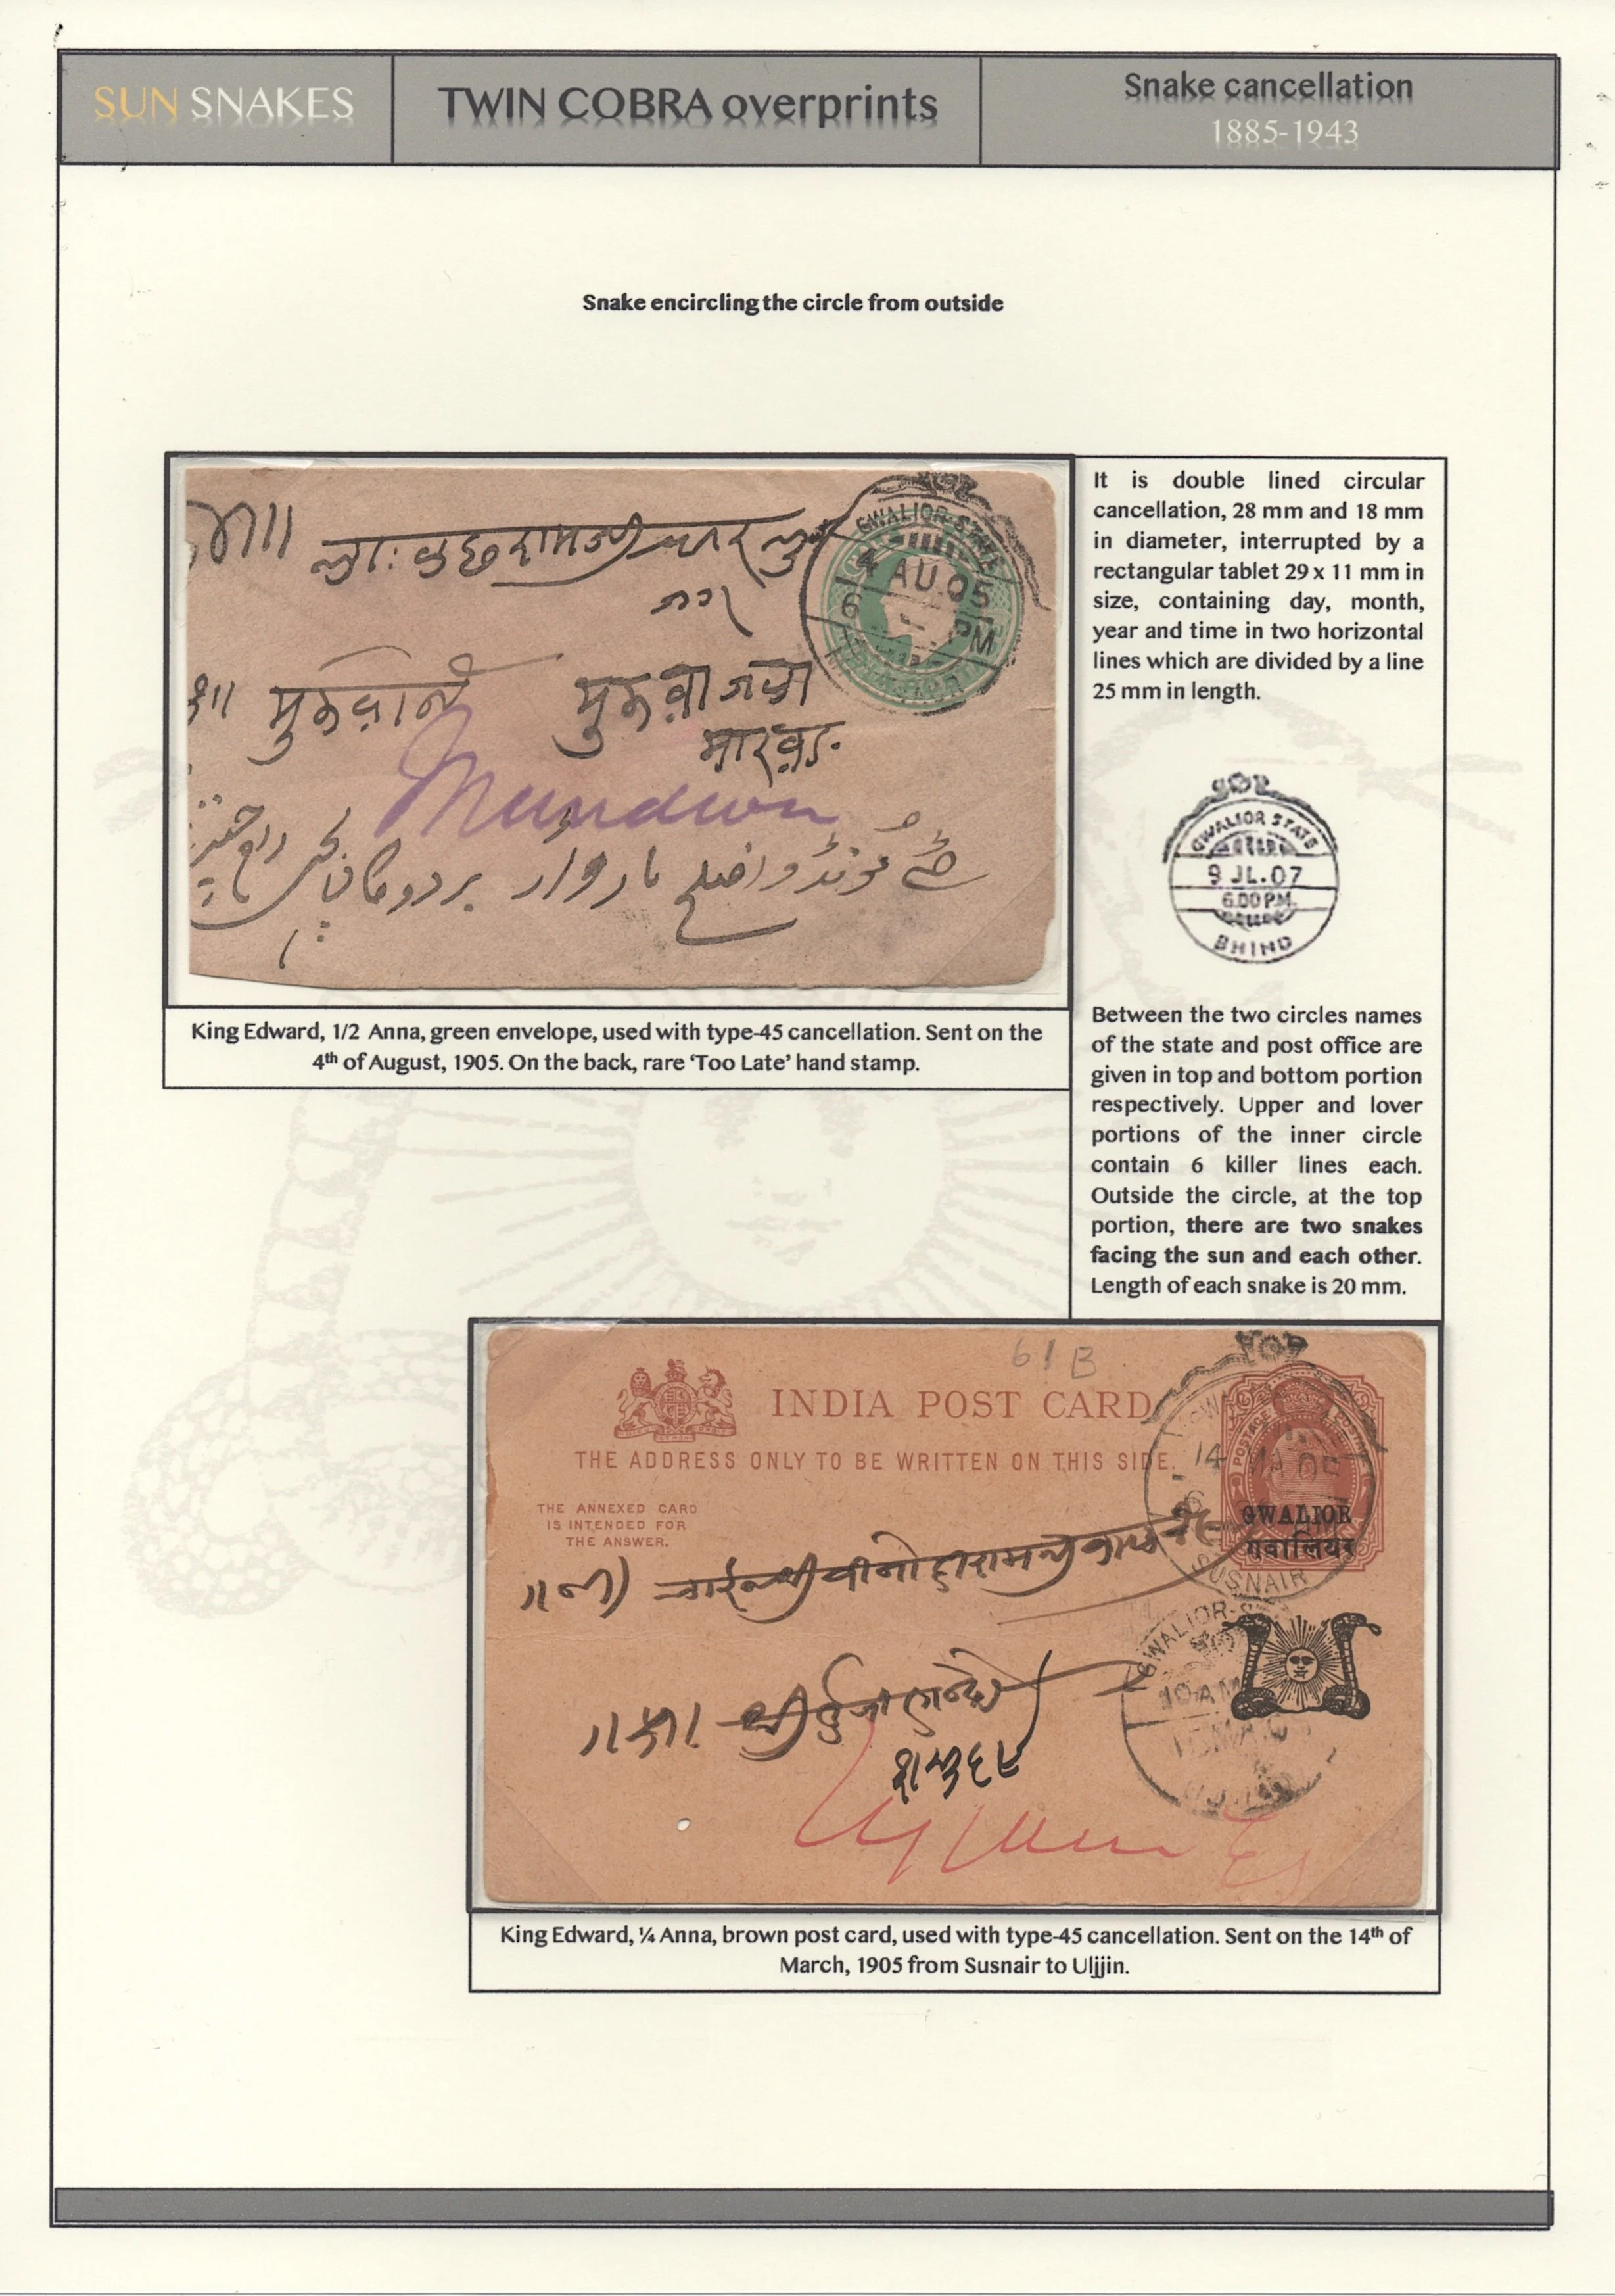 SUN SNAKES
TWIN COBRA overprints
Snake cancellation
1885-1943
Snake encircling the circle from outside
GWALIOR STATE
4 AU 05
6 PM
Mundwa
King Edward, 1/2 Anna, green envelope, used with type-45 cancellation. Sent on the
4th of August, 1905. On the back, rare ‘Too Late’ hand stamp.
It is double lined circular
cancellation, 28 mm and 18 mm
in diameter, interrupted by a
rectangular tablet 29 x 11 mm in
size, containing day, month,
year and time in two horizontal
lines which are divided by a line
25 mm in length.
GWALIOR STATE
9 JL.07
6.00 PM.
BHIND
Between the two circles names
of the state and post office are
given in top and bottom portion
respectively. Upper and lover
portions of the inner circle
contain 6 killer lines each.
Outside the circle, at the top
portion, there are two snakes
facing the sun and each other.
Length of each snake is 20 mm.
61 B
INDIA POST CARD
THE ADDRESS ONLY TO BE WRITTEN ON THIS SIDE.
THE ANNEXED CARD
IS INTENDED FOR
THE ANSWER.
POSTAGE
14
GWALIOR
गवालियर
SUSNAIR
GWALIOR
10 AM
King Edward, ¼ Anna, brown post card, used with type-45 cancellation. Sent on the 14th of
March, 1905 from Susnair to Uljjin.